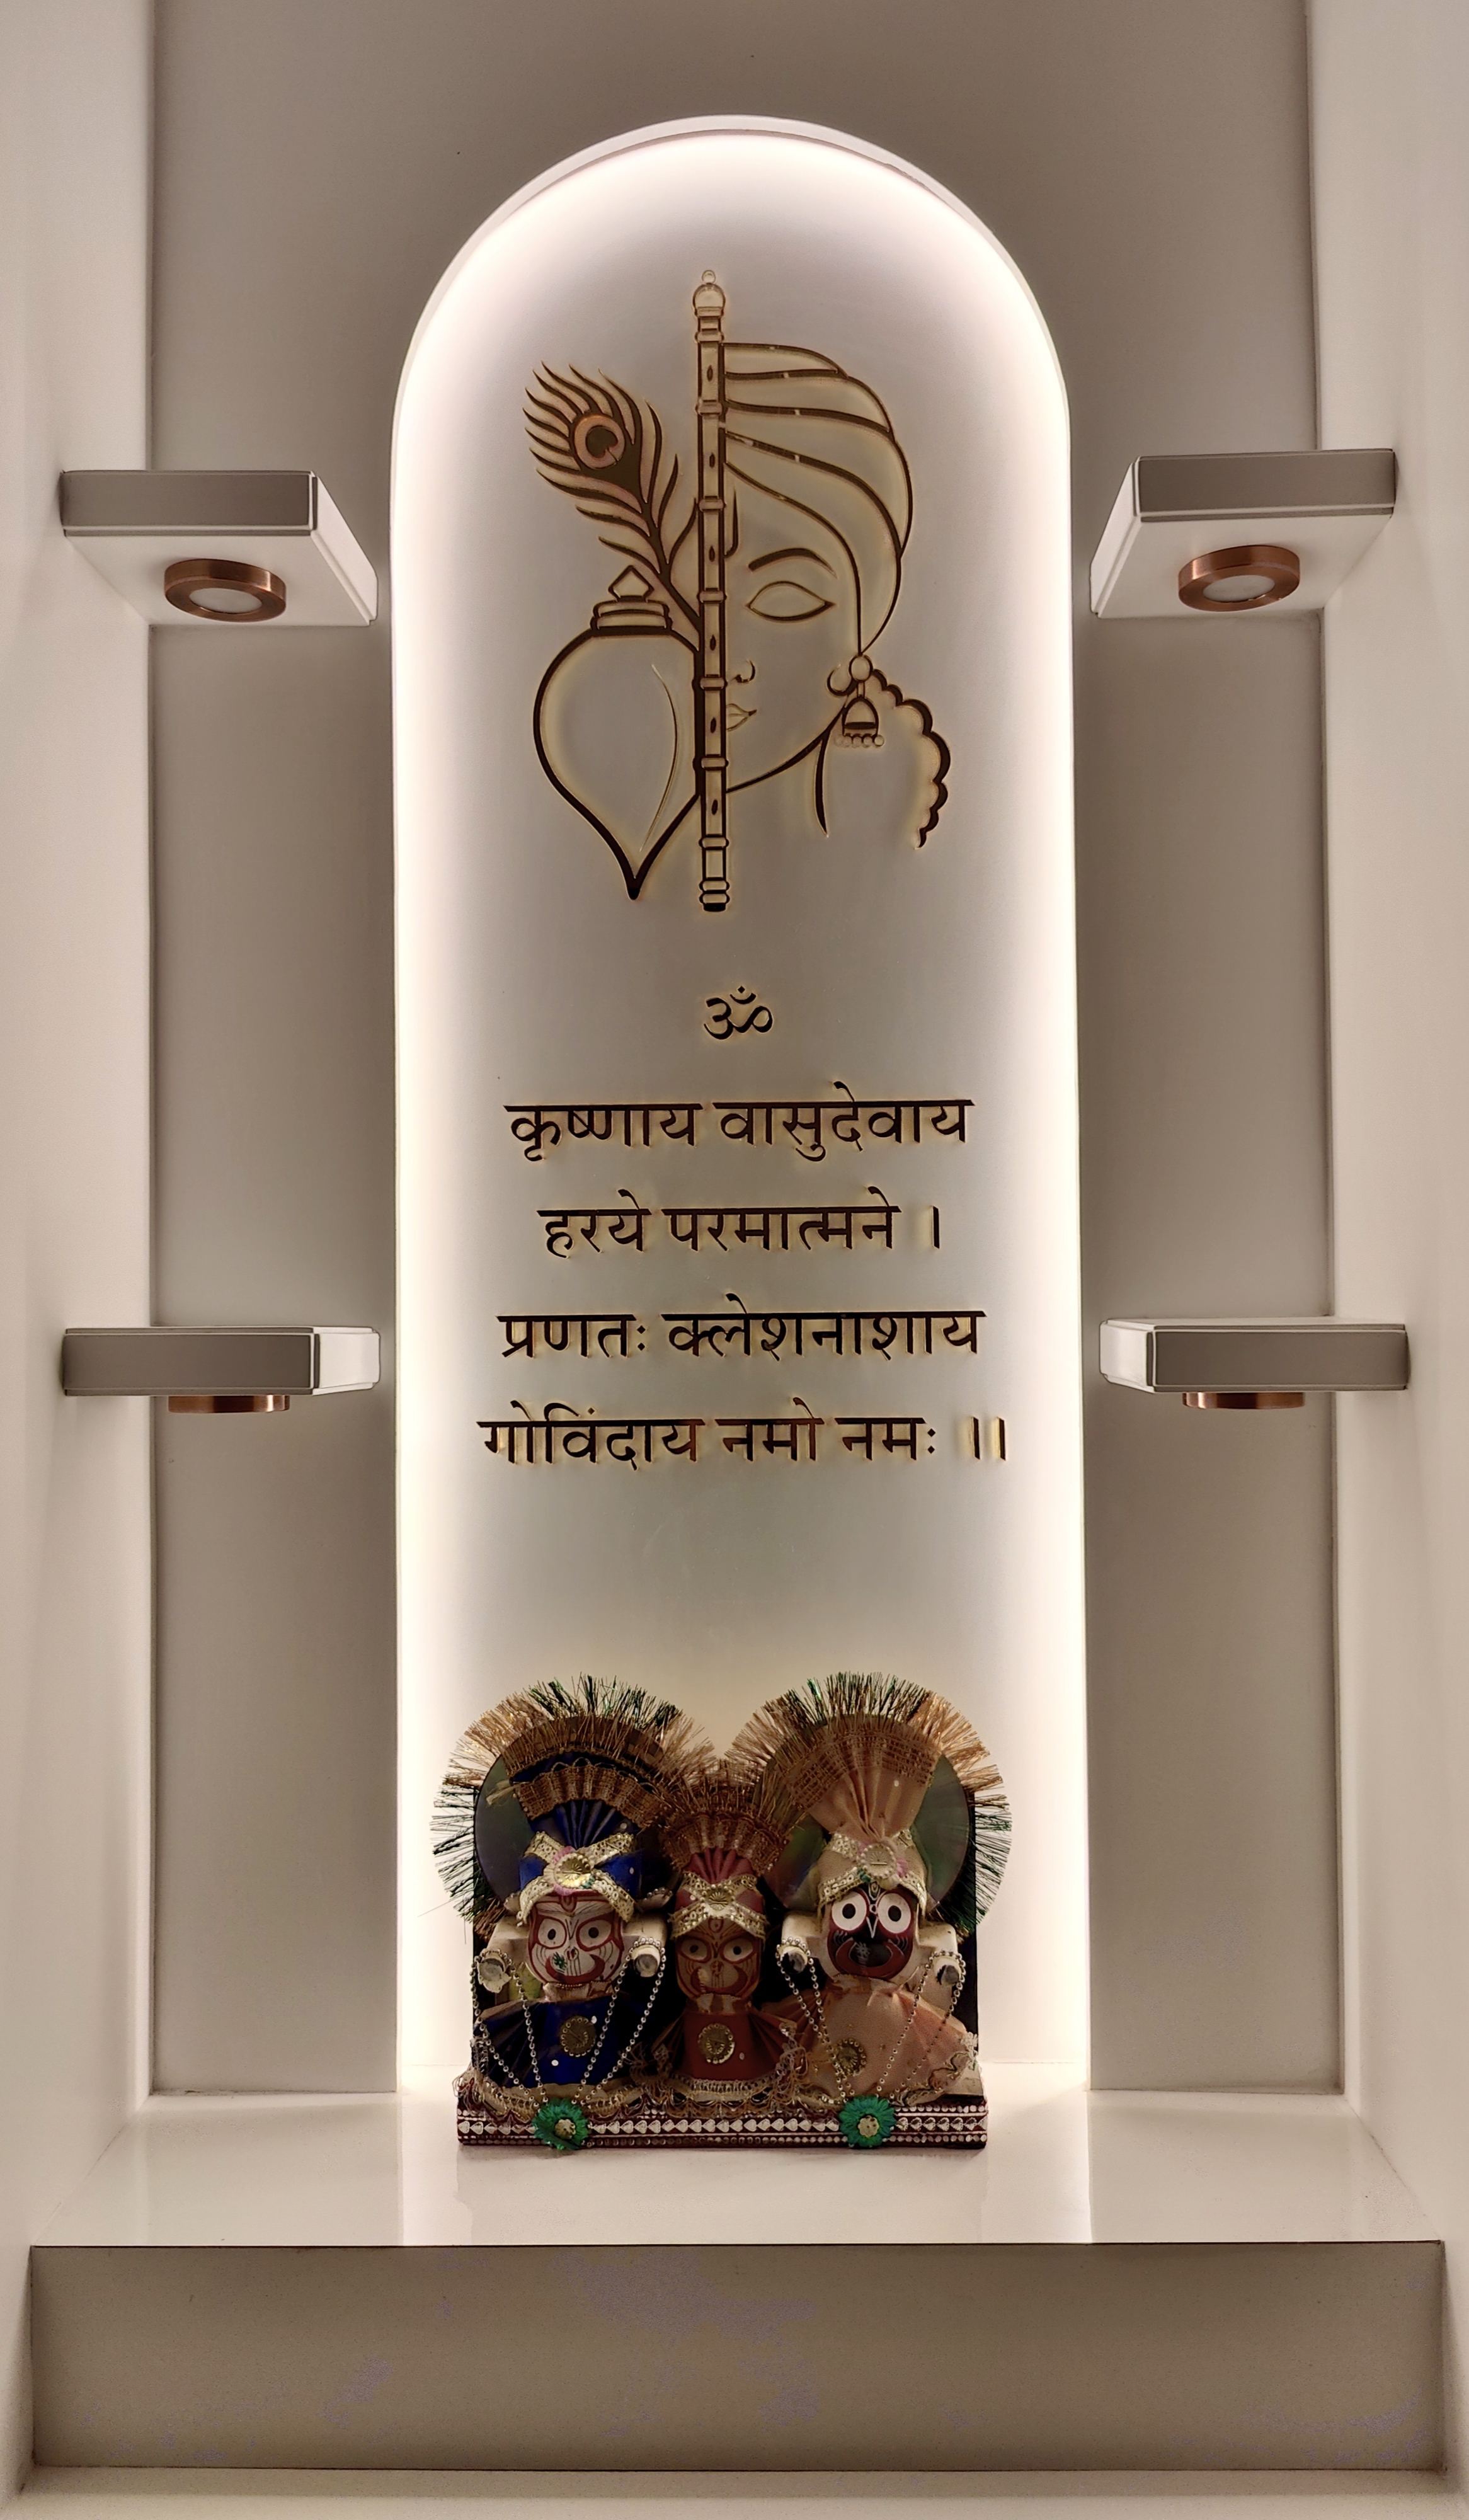 ॐ
कृष्णाय वासुदेवाय
हरये परमात्मने ।
प्रणतः क्लेशनाशाय
गोविंदाय नमो नमः ।।